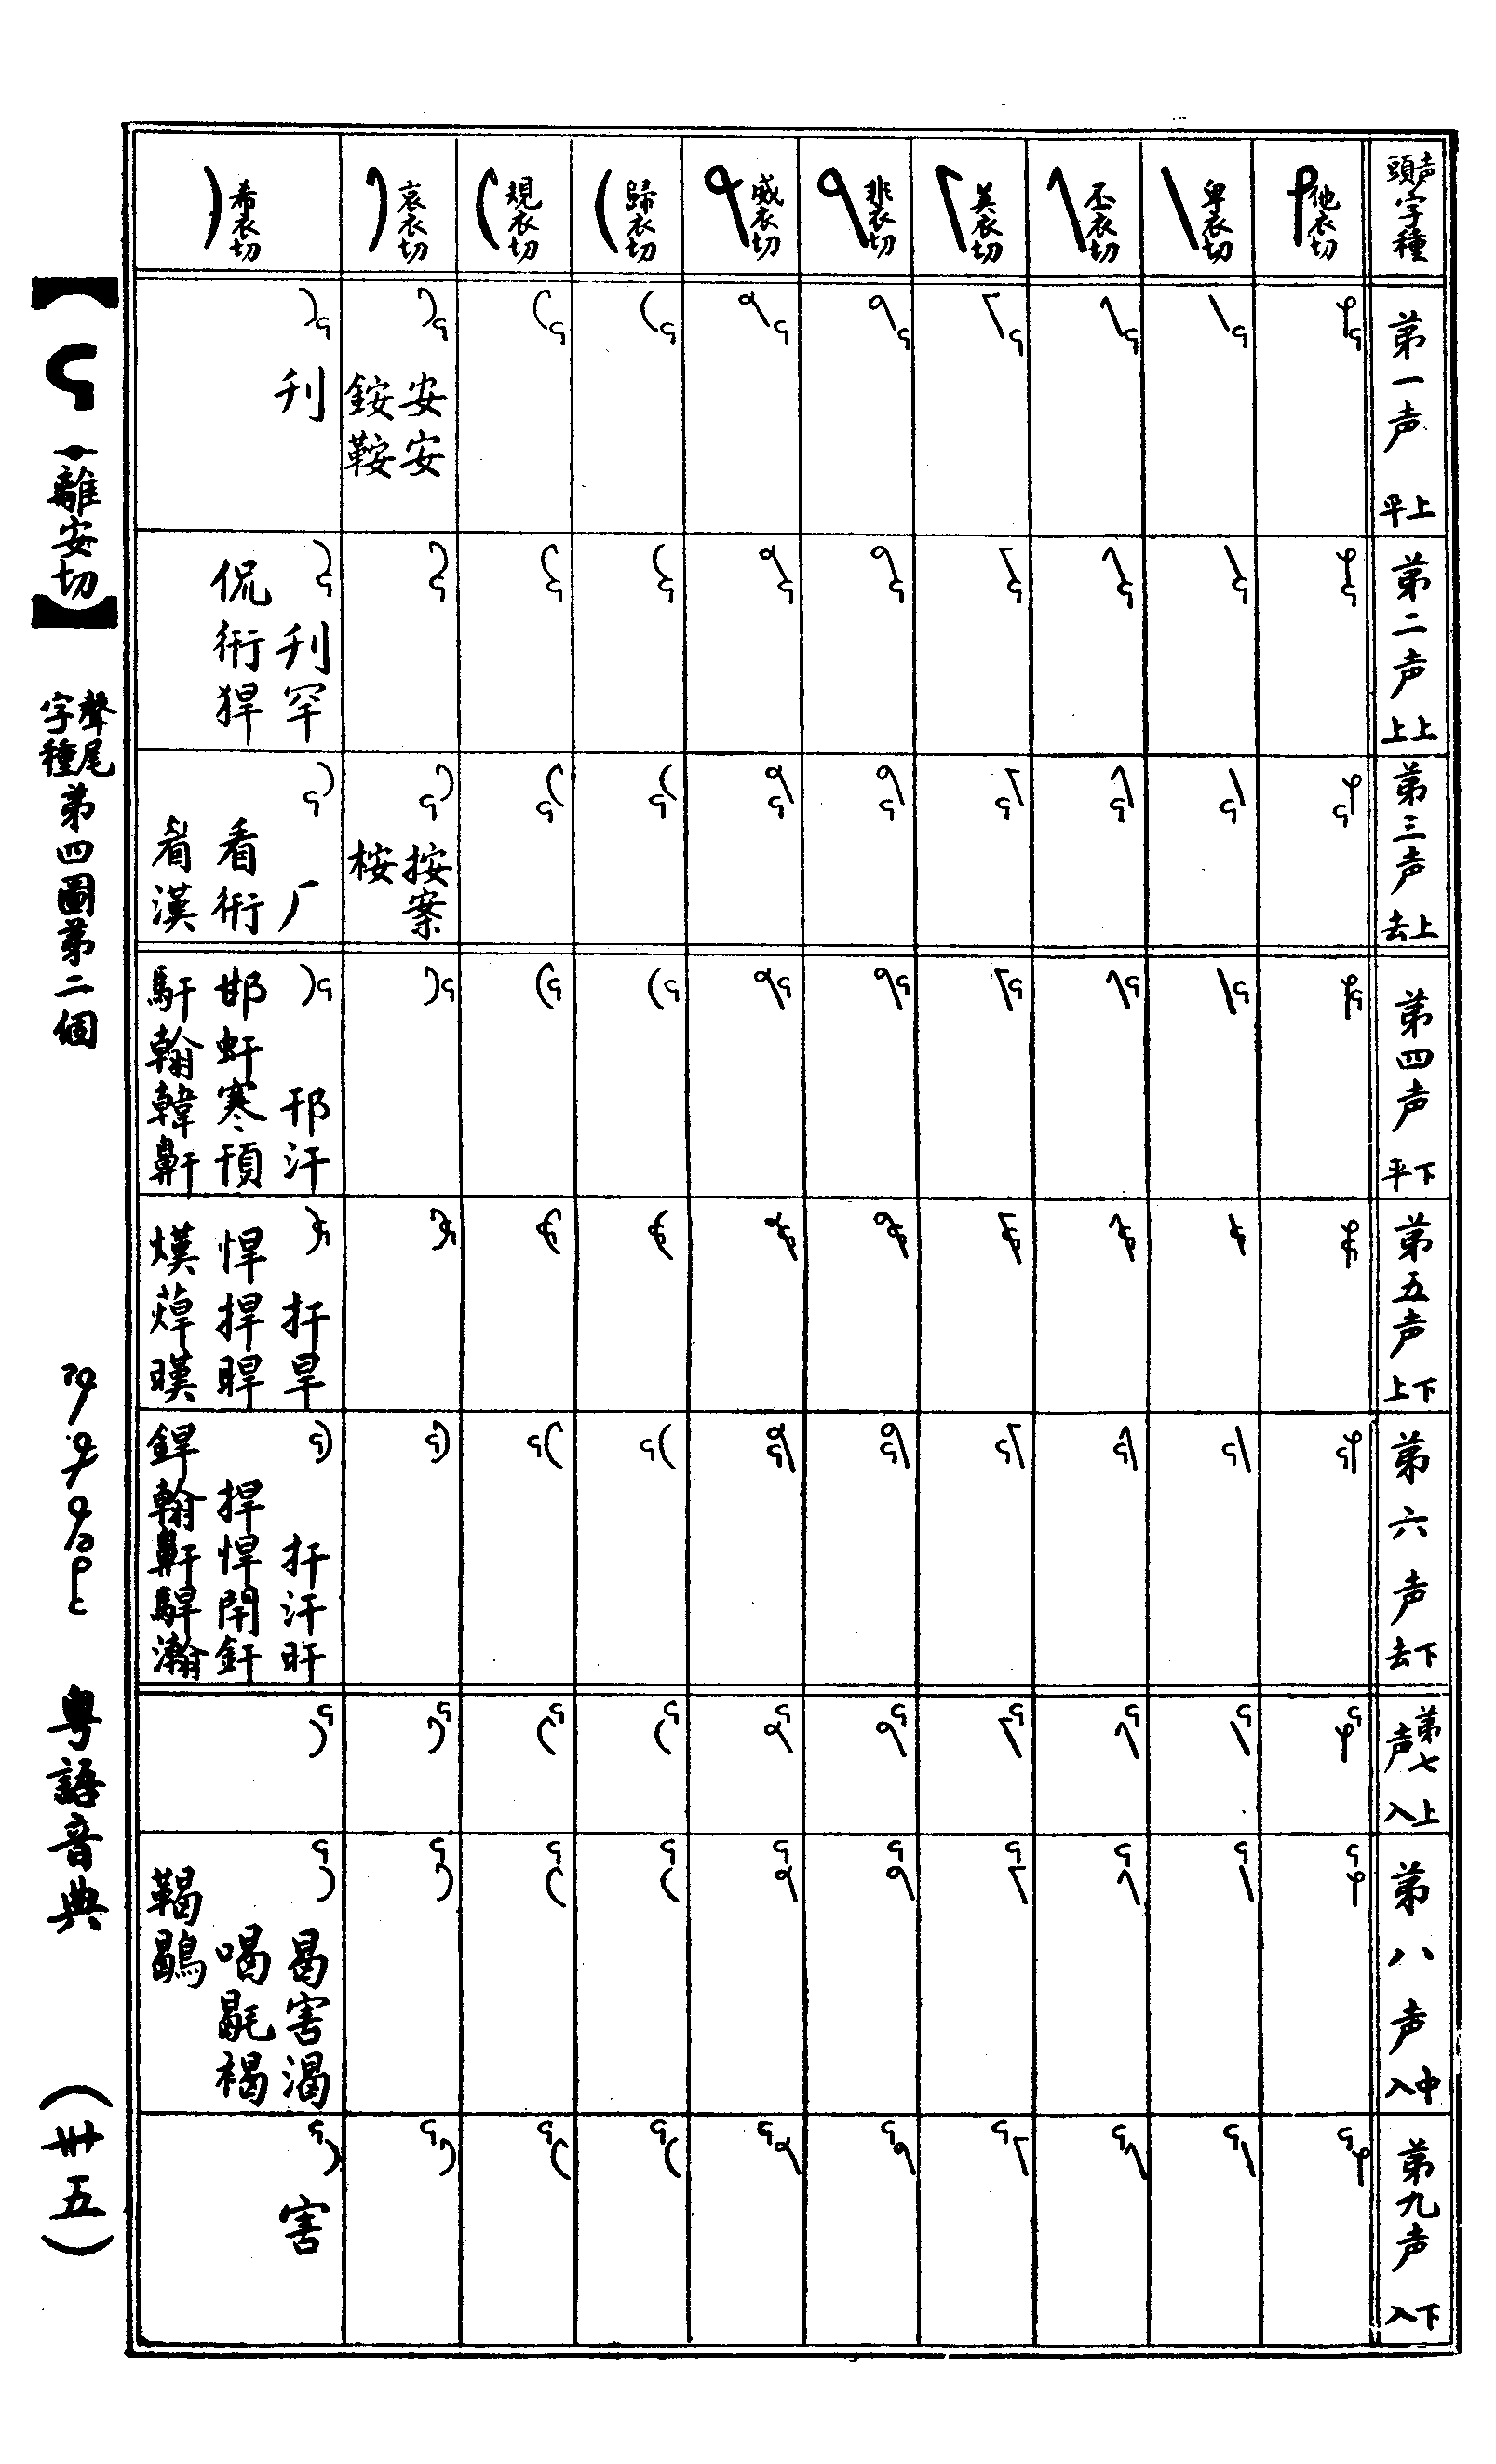 声頭字種
他衣切
卑衣切
丕衣切
美衣切
非衣切
威衣切
歸衣切
規衣切
哀衣切
希衣切
第一声
上平
安安
銨鞍
刊
第二声
上上
刊罕
侃衎猂
第三声
上去
按案
桉
厂
看衎
漢
第四声
下平
邗汗
邯虷寒頇
馯翰韓鼾
第五声
下上
扞旱
悍捍睅
熯暵
第六声
下去
扞汗旰
捍悍閈釬
銲翰鼾駻瀚
第七声
上入
第八声
中入
曷害渴
喝毼褐
鞨鶡
第九声
下入
害
【 離安切】
聲尾字種第四圖第二個
粵語音典
(卅五)